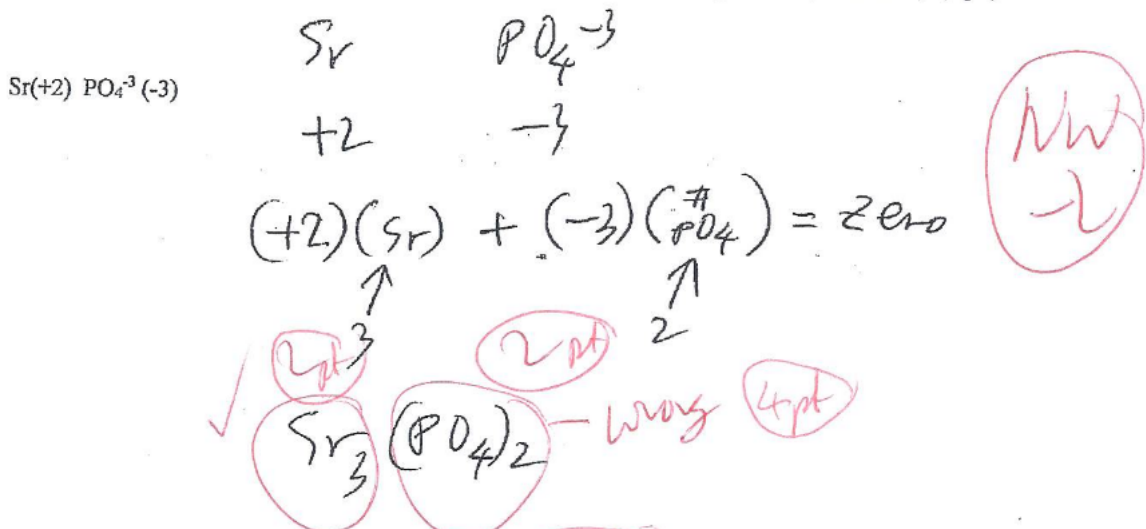 Sr PO₄⁻³
Sr(+2) PO₄⁻³ (-3)
+2 -3
NW
-2
(+2)(Sr) + (-3)(# PO₄) = zero
3 2
2pt 2pt
✓ Sr₃ (PO₄)₂ — wrong 4pt